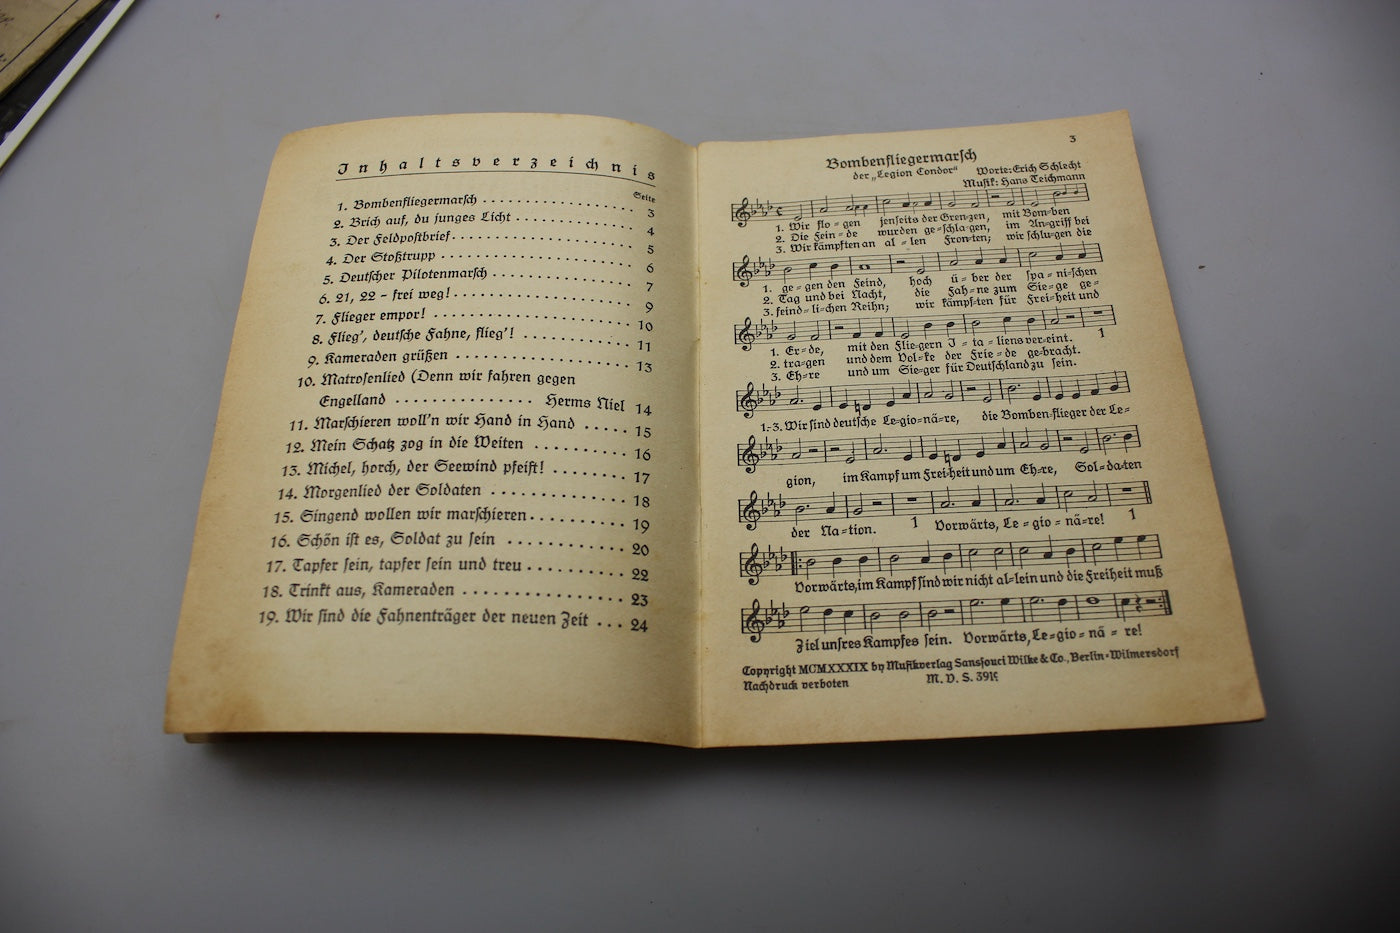 Inhaltsverzeichnis
Seite
1. Bombenfliegermarsch 3
2. Brich auf, du junges Licht 4
3. Der Feldpostbrief 5
4. Der Stoßtrupp 6
5. Deutscher Pilotenmarsch 7
6. 21, 22 - frei weg! 9
7. Flieger empor! 10
8. Flieg', deutsche Fahne, flieg'! 11
9. Kameraden grüßen 13
10. Matrosenlied (Denn wir fahren gegen
Engelland Herms Niel 14
11. Marschieren woll'n wir Hand in Hand 15
12. Mein Schatz zog in die Weiten 16
13. Michel, horch, der Seewind pfeift! 17
14. Morgenlied der Soldaten 18
15. Singend wollen wir marschieren 19
16. Schön ist es, Soldat zu sein 20
17. Tapfer sein, tapfer sein und treu 22
18. Trinkt aus, Kameraden 23
19. Wir sind die Fahnenträger der neuen Zeit 24
3
Bombenfliegermarsch
der „Legion Condor" Worte: Erich Schlecht
Musik: Hans Teichmann
1. Wir flo-gen jenseits der Gren-zen, mit Bom-ben
2. Die Fein-de wurden ge-schla-gen, im An-griff bei
3. Wir kämpften an al-len Fron-ten; wir schlu-gen die
1. ge-gen den Feind, hoch ü-ber der spa-ni-schen
2. Tag und bei Nacht, die Fah-ne zum Sie-ge ge-
3. feind-li-chen Reihn; wir kämpf-ten für Frei-heit und
1. Er-de, mit den Flie-gern I-ta-liens ver-eint. 1
2. tra-gen und dem Vol-ke der Frie-de ge-bracht.
3. Eh-re und um Sie-ger für Deutschland zu sein.
1.-3. Wir sind deutsche Le-gio-nä-re, die Bomben-flieger der Le-
gion, im Kampf um Frei-heit und um Eh-re, Sol-da-ten
der Na-tion. 1 Vorwärts, Le-gio-nä-re! 1
Vorwärts, im Kampf sind wir nicht al-lein und die Freiheit muß
Ziel unsres Kampfes sein. Vorwärts, Le-gio-nä-re!
Copyright MCMXXXIX by Musikverlag Sanssouci Wilke & Co., Berlin-Wilmersdorf
Nachdruck verboten M. V. S.